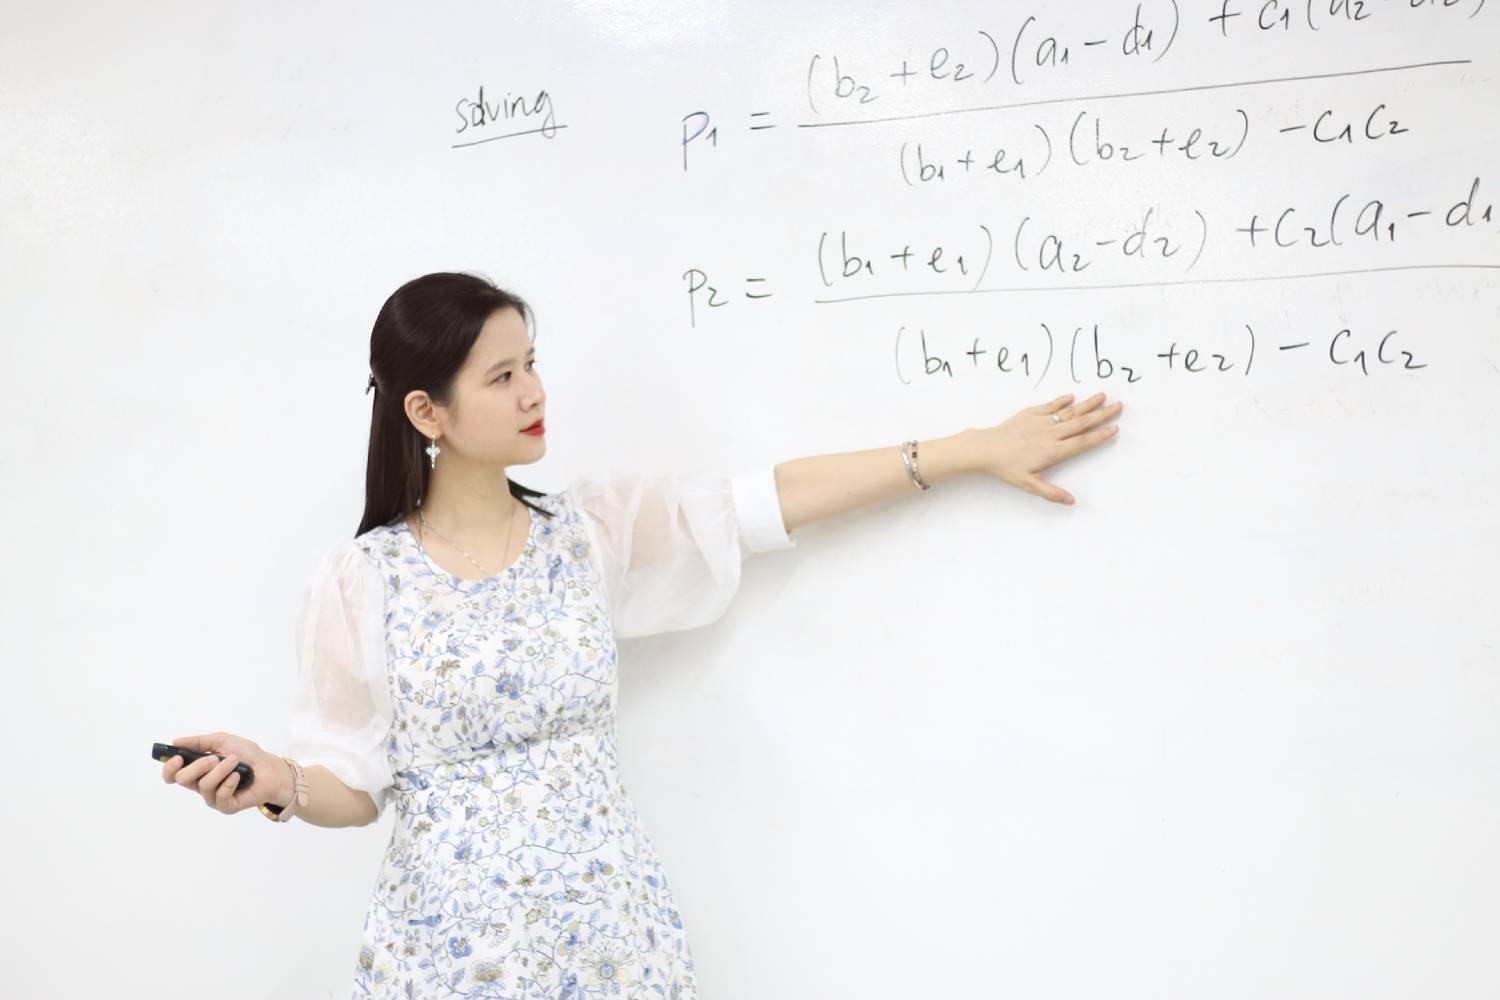 solving
p₁ = (b₂ + e₂)(a₁ - d₁) + c₁(a₂ - d₂)
(b₁ + e₁)(b₂ + e₂) - c₁c₂
p₂ = (b₁ + e₁)(a₂ - d₂) + c₂(a₁ - d₁
(b₁ + e₁)(b₂ + e₂) - c₁c₂